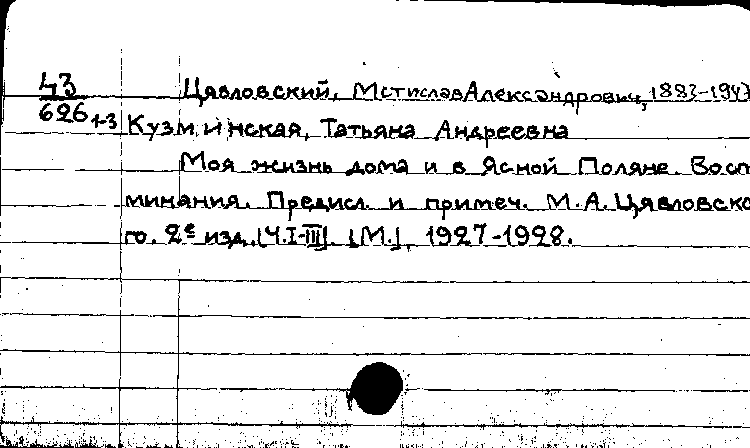 43 Цявловский, Мстислав Александрович, 1883-1947
626 1-3 Кузминская, Татьяна Андреевна
Моя жизнь дома и в Ясной Поляне. Восп
минания. Предисл. и примеч. М.А. Цявловско
го. 2е изд. [Ч. I-III]. [М.], 1927-1928.